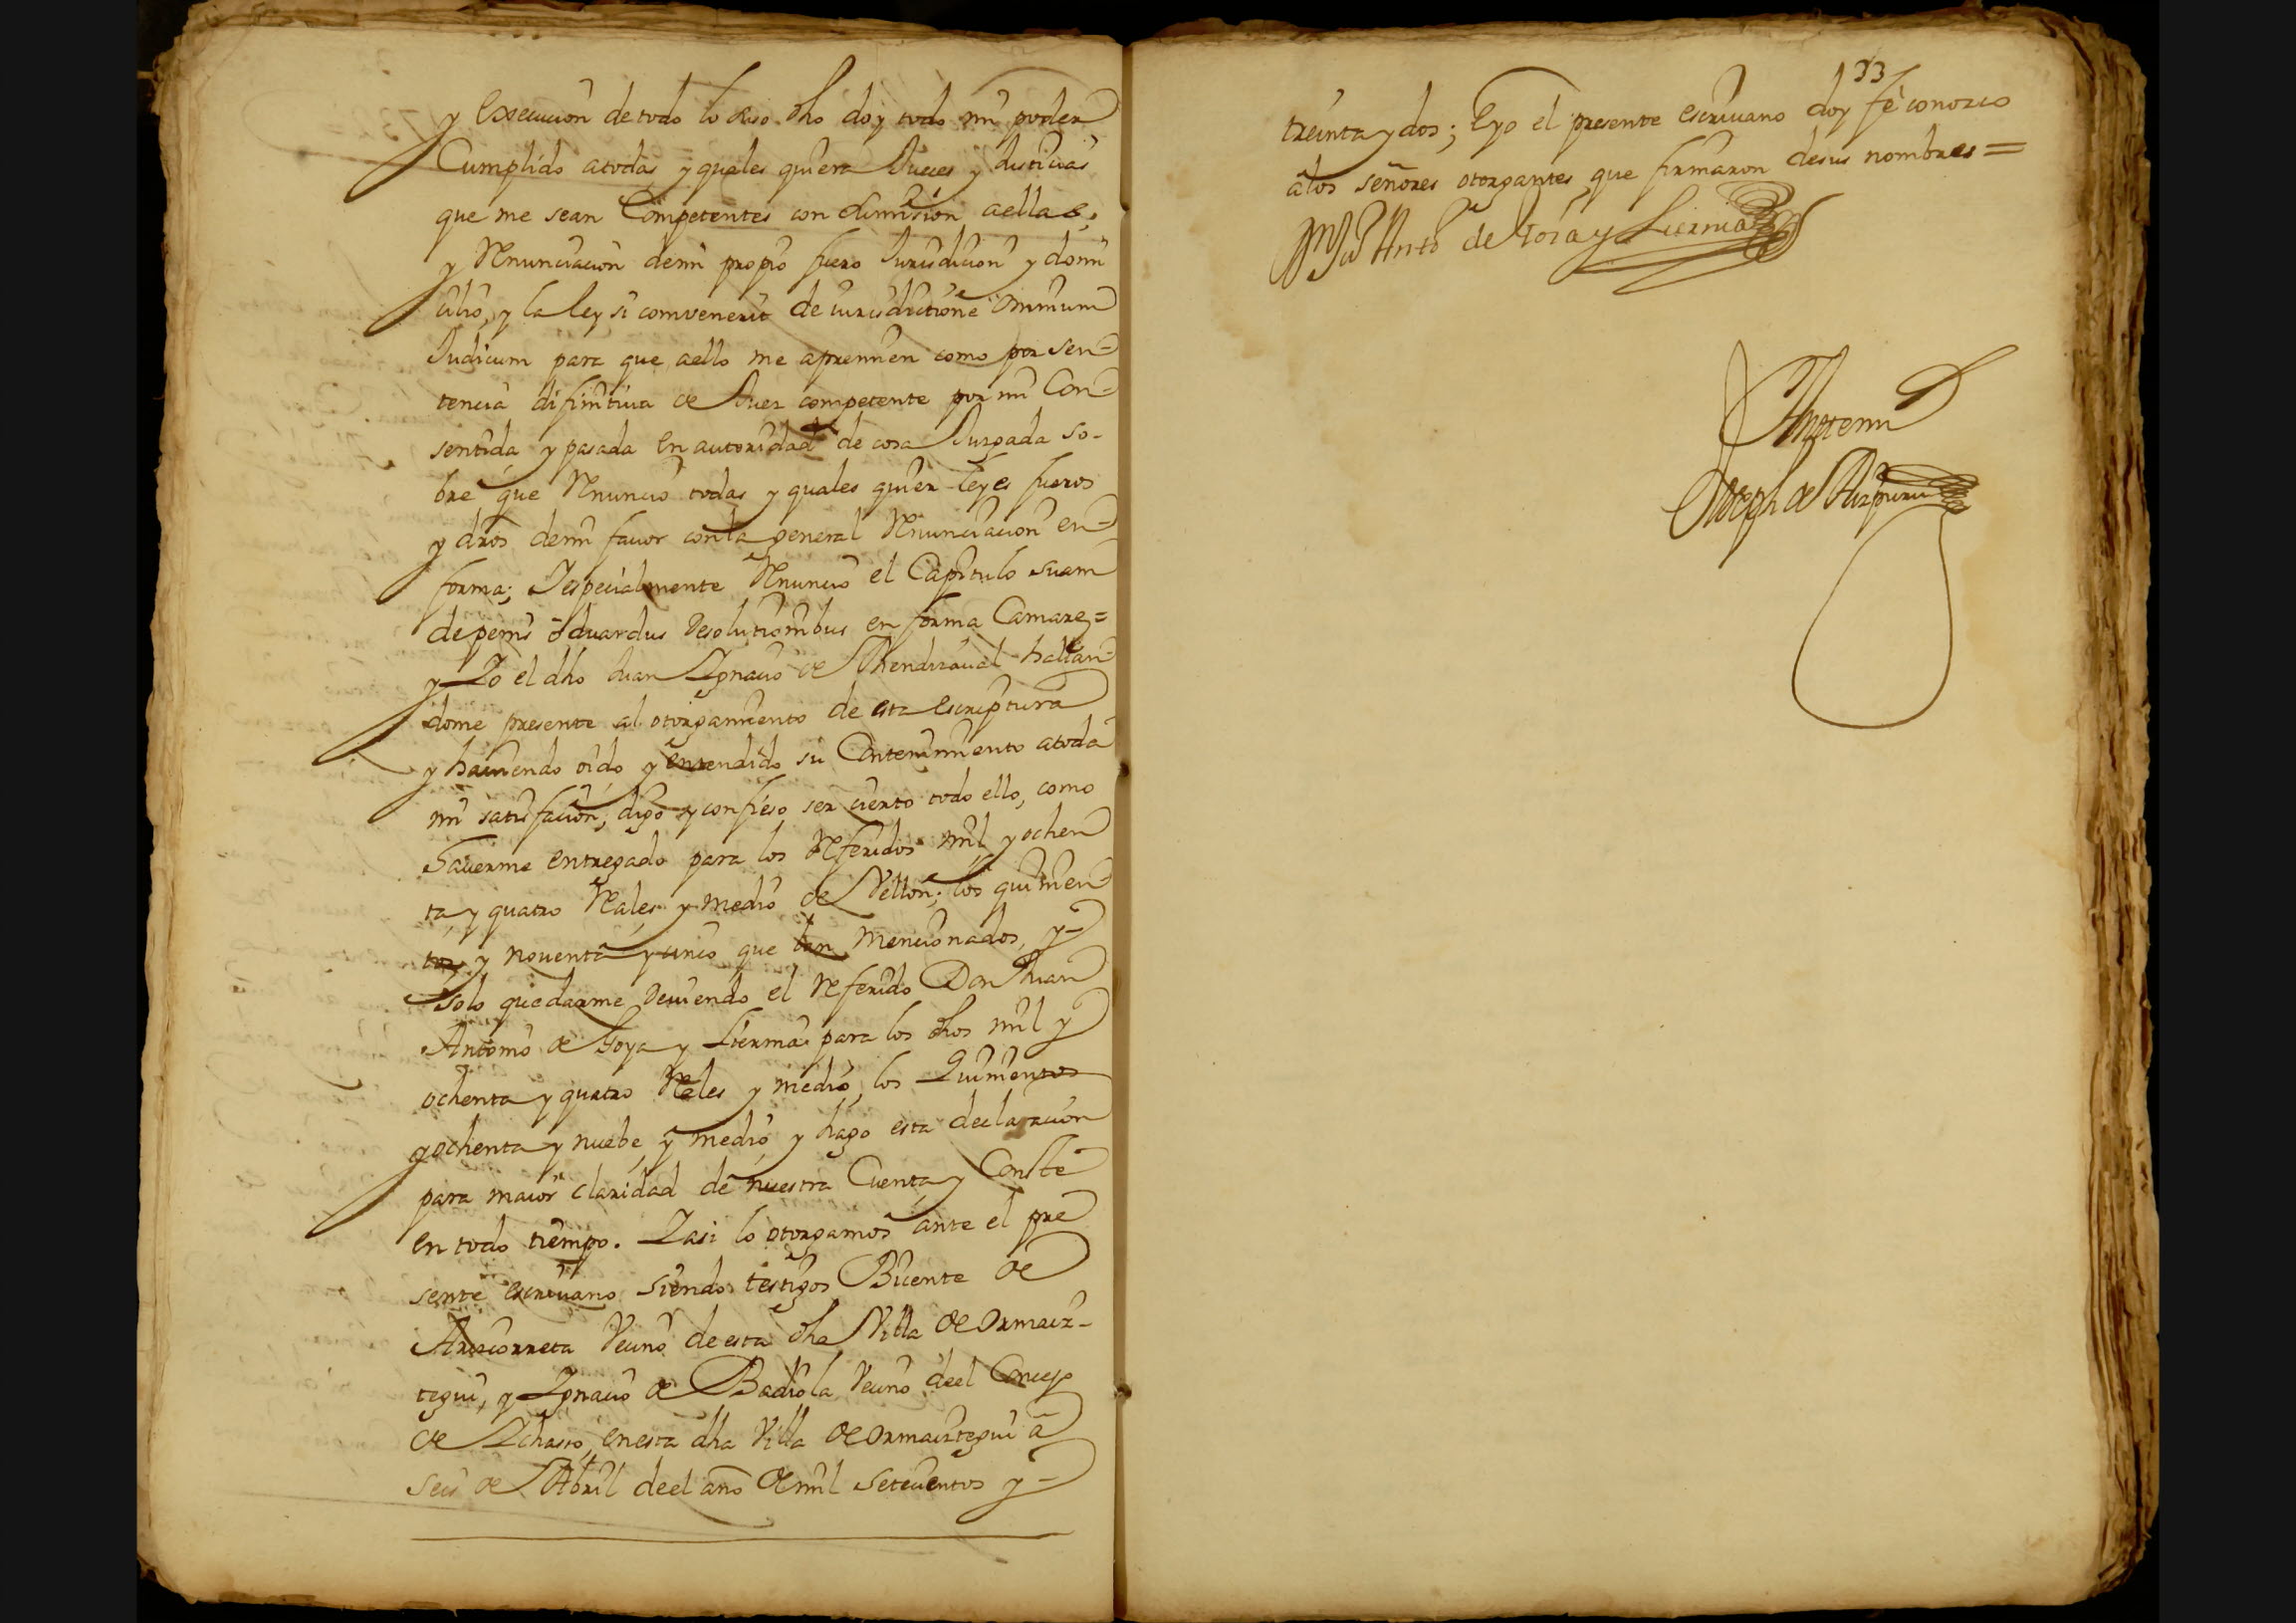 y execucion de todo lo suso dho doy todo mi poder
Cumplido atodas y quales quiera Jueces y Justicias
que me sean Competentes con sumision aellas,
y Renunciacion demi propio fuero Jurisdicion y domi
cilio, y la ley si comvenerit de iurisdictione omnium
Judicum para que aello me apremien como por sen-
tencia difinitiua de Juez competente por mi Con-
sentida y pasada en autoridad de cosa Juzgada so-
bre que Renuncio todas y quales quier leyes fueros
y dros demi fauor conla general Renunciacion en-
forma; Jespecialmente Renuncio el Capitulo suam
depenis oduardus desolutionibus en forma Camare=
y Yo el dho Juan Ygnacio de Mendizaual hallan-
dome presente al otorgamiento de esta escriptura
y hauiendo oido y entendido su Contenimiento atoda
mi satisfacion, digo y confieso ser cierto todo ello, como
hauerme entregado para los Referidos mil y ochen
ta y quatro Reales y medio de Vellon; los quinien-
tos y nouenta y cinco que van mencionados, y-
solo quedarme deuiendo el Referido Don Juan
Antonio de Goya y Liernia para los dhos mil y
ochenta y quatro Rales y medio, los Quinientos
y ochenta y nuebe y medio, y hago esta declaracion
para maior claridad de nuestra Cuenta y Conste
en todo tiempo. Yasi lo otorgamos ante el pre
sente escriuano siendo testigos Bicente de
Arizcorreta Vecino de esta dha Villa de Ormaiz-
tegui, y Ygnacio de Badiola Vecino deel Concejo
de Ychaso, enesta dha Villa de Ormaiztegui à
seis de Abril deel año de mil setecientos y-
33
treinta y dos; Eyo el presente escriuano doy fe conozco
àlos señores otorgantes que firmaron desus nombres=
Antº de Goia y Liernia
Antemi
Joseph de Aizpuru